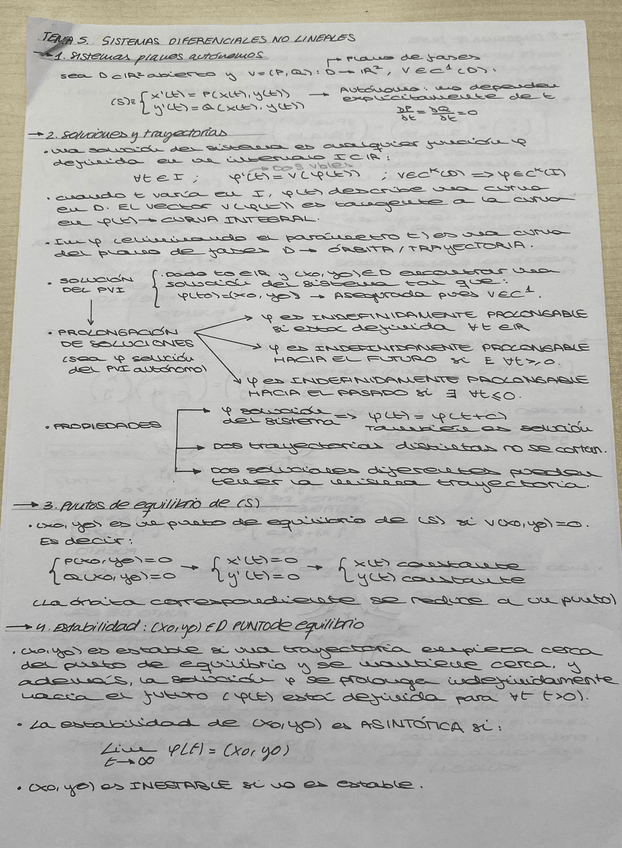 TEMA 5. SISTEMAS DIFERENCIALES NO LINEALES
→ 1. Sistemas planos autónomos → Plano de fases
sea D⊂ℝ² abierto y V=(P,Q): D→ℝ², V∈C¹(D).
(S)≡ { x'(t)=P(x(t),y(t)) → Autónomo: no dependen
y'(t)=Q(x(t),y(t)) explícitamente de t
∂P/∂t = ∂Q/∂t = 0
→ 2. Soluciones y trayectorias
• una solución del sistema es cualquier función φ
definida en un intervalo I⊂ℝ:
∀t∈I ; φ'(t)=V(φ(t)) ; V∈Cᵏ(D) => φ∈Cᵏ(I)
• cuando t varía en I, φ(t) describe una curva
en D. El vector V(φ(t)) es tangente a la curva
en φ(t) → CURVA INTEGRAL.
• Im φ (eliminando el parámetro t) es una curva
del plano de fases D → ÓRBITA / TRAYECTORIA.
• SOLUCIÓN DEL PVI { . Dado to∈ℝ y (xo,yo)∈D encontrar una
solución del sistema tal que:
φ(to)=(xo,yo) → Asegurada pues V∈C¹.
• PROLONGACIÓN DE SOLUCIONES (sea φ solución del PVI autónomo)
→ φ es INDEFINIDAMENTE PROLONGABLE
si está definida ∀t∈ℝ
→ φ es INDEFINIDAMENTE PROLONGABLE
HACIA EL FUTURO si ∃ ∀t≥0.
→ φ es INDEFINIDAMENTE PROLONGABLE
HACIA EL PASADO si ∃ ∀t≤0.
• PROPIEDADES → φ solución del sistema => φ(t) = φ(t+c)
también es solución
→ Dos trayectorias distintas no se cortan.
→ Dos soluciones diferentes pueden
tener la misma trayectoria.
→ 3. Puntos de equilibrio de (S)
• (xo,yo) es un punto de equilibrio de (S) si V(xo,yo)=0.
Es decir:
{ P(xo,yo)=0 → { x'(t)=0 → { x(t) constante
Q(xo,yo)=0 y'(t)=0 y(t) constante
(La órbita correspondiente se reduce a un punto)
→ 4. Estabilidad: (xo,yo)∈D PUNTO de equilibrio
• (xo,yo) es estable si una trayectoria empieza cerca
del punto de equilibrio y se mantiene cerca. y
además, la solución φ se prolonga indefinidamente
hacia el futuro (φ(t) está definida para ∀t t>0).
• La estabilidad de (xo,yo) es ASINTÓTICA si:
Lim t→∞ φ(t) = (xo,yo)
• (xo,yo) es INESTABLE si no es estable.